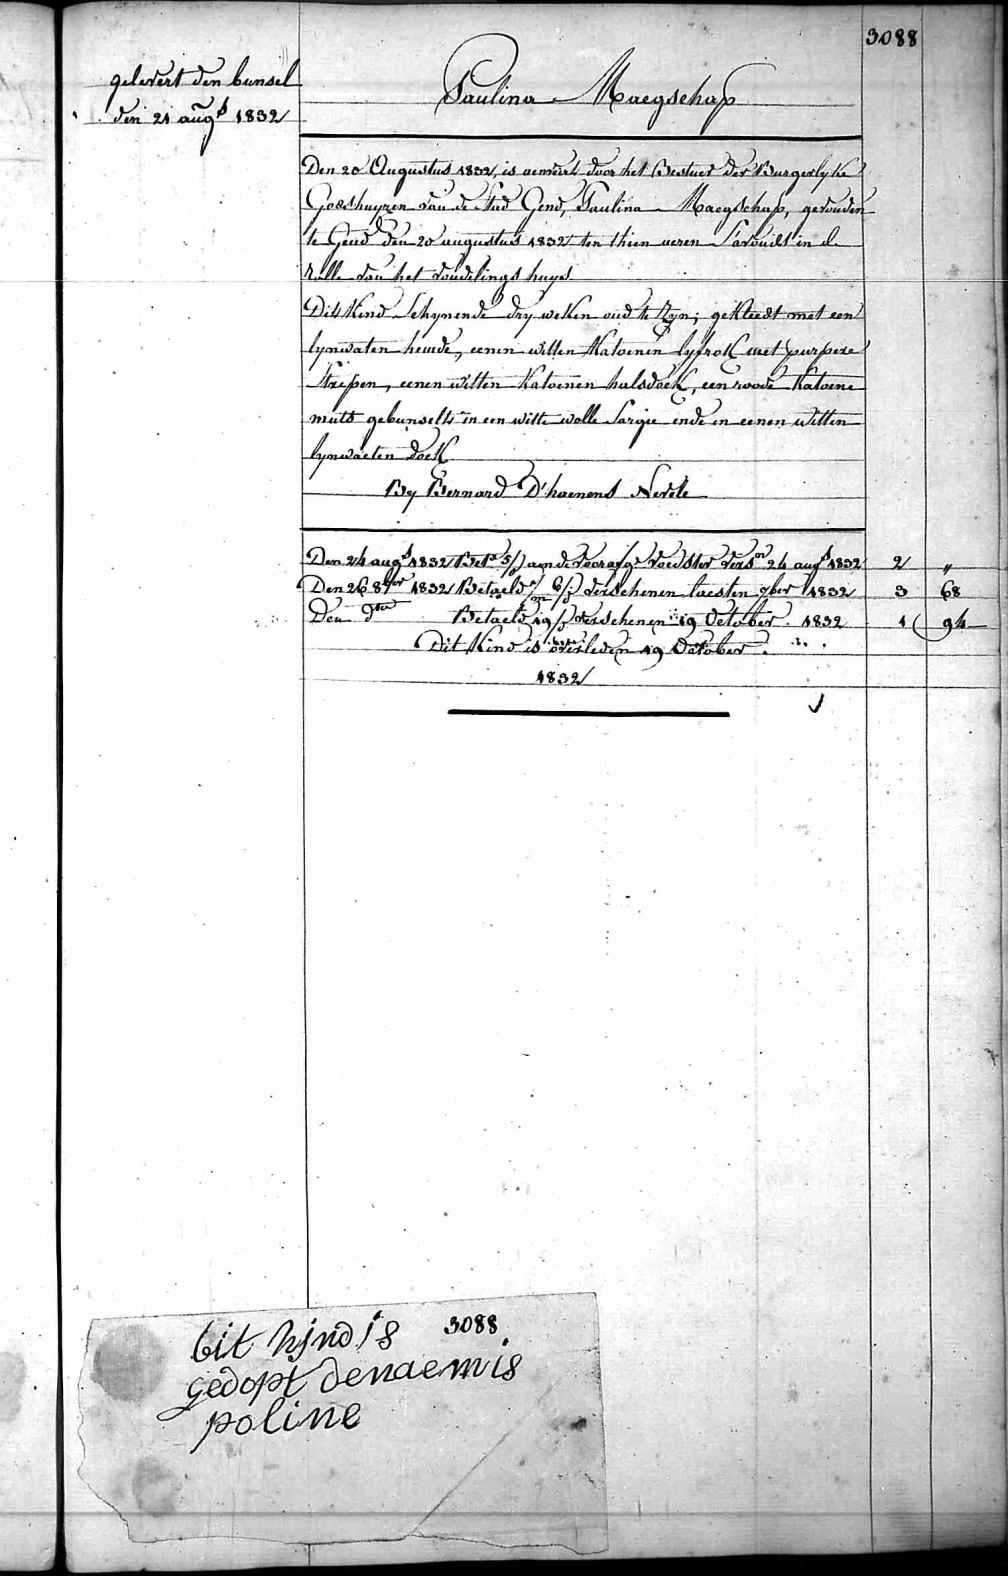 3088
gelevert den bunsel
den 21 augs 1832
Paulina Maegschap
Den 20 Augustus 1832, is aenveirt door het Bestuer der Burgerlyke
Godshuyzen van de Stad Gend, Paulina Maegschap, gevonden
te Gend den 20 augustus 1832 ten thien ueren S'avonds in de
rolle van het vondelings huys
Dit Kind Schynende dry weken oud te Zyn; gekleedt met een
lynwaten hemde, eenen witten Katoenen lyfrok met purpere
strepen, eenen witten Katoenen halsdoek, een roode Katoene
muts gebunselt in een witte wolle Sargie ende in eenen witten
lynwaeten doek
By Bernard D'haenens Nevele
Den 24 augs 1832 Bet. 5/ aen de voorzge voedster vers. 24 augs 1832 2 "
Den 26 8ber 1832 Betaeld 6/ verschenen laesten 7ber 1832 3 68
Den dto Betaeld 19/ verschenen 19 October 1832 1 94
Dit Kind is overleden 19 October
1832
3088
bit kjnd is
gedopt denaem is
poline